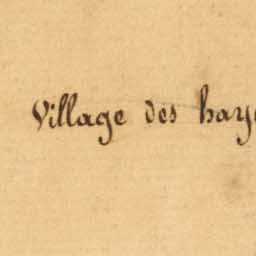 Village des hay